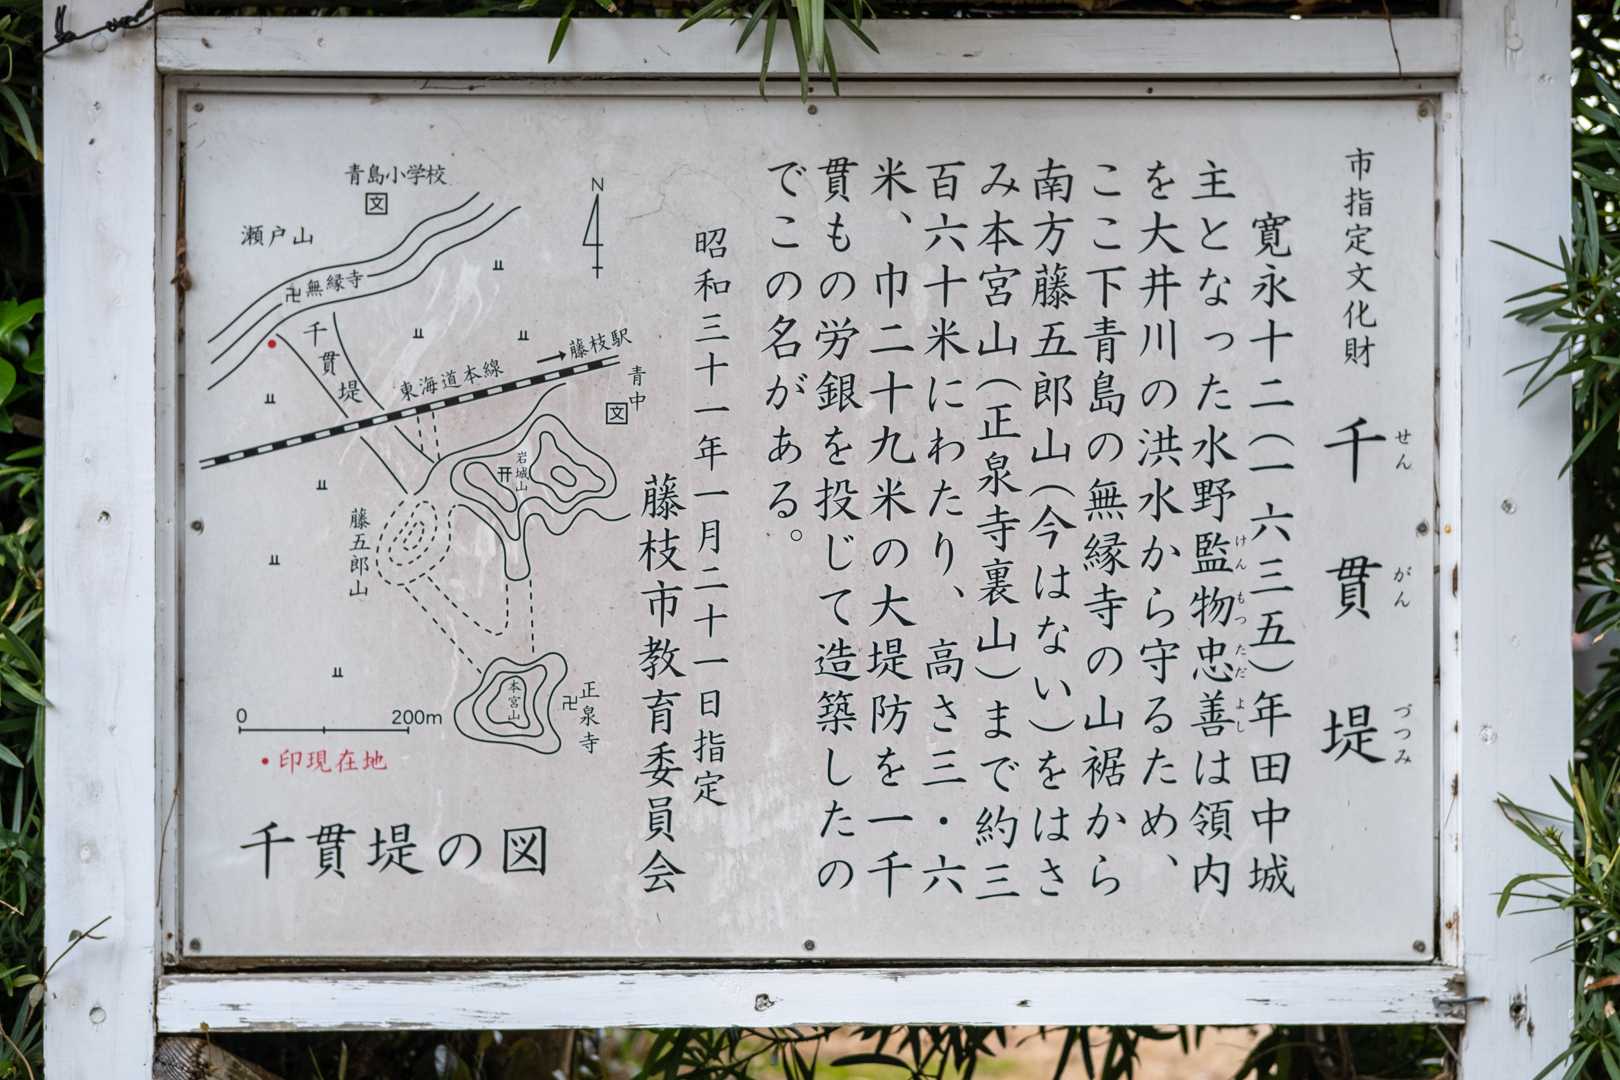 市指定文化財
千貫堤
せんがんづつみ
寛永十二(一六三五)年田中城
主となった水野監物忠善は領内
けんもつただよし
を大井川の洪水から守るため、
ここ下青島の無縁寺の山裾から
南方藤五郎山(今はない)をはさ
み本宮山(正泉寺裏山)まで約三
百六十米にわたり、高さ三・六
米、巾二十九米の大堤防を一千
貫もの労銀を投じて造築したの
でこの名がある。
昭和三十一年一月二十一日指定
藤枝市教育委員会
青島小学校
文
瀬戸山
卍無縁寺
千貫堤
N
東海道本線
→藤枝駅
青中
文
岩城山
藤五郎山
本宮山
卍正泉寺
0 200m
•印現在地
千貫堤の図